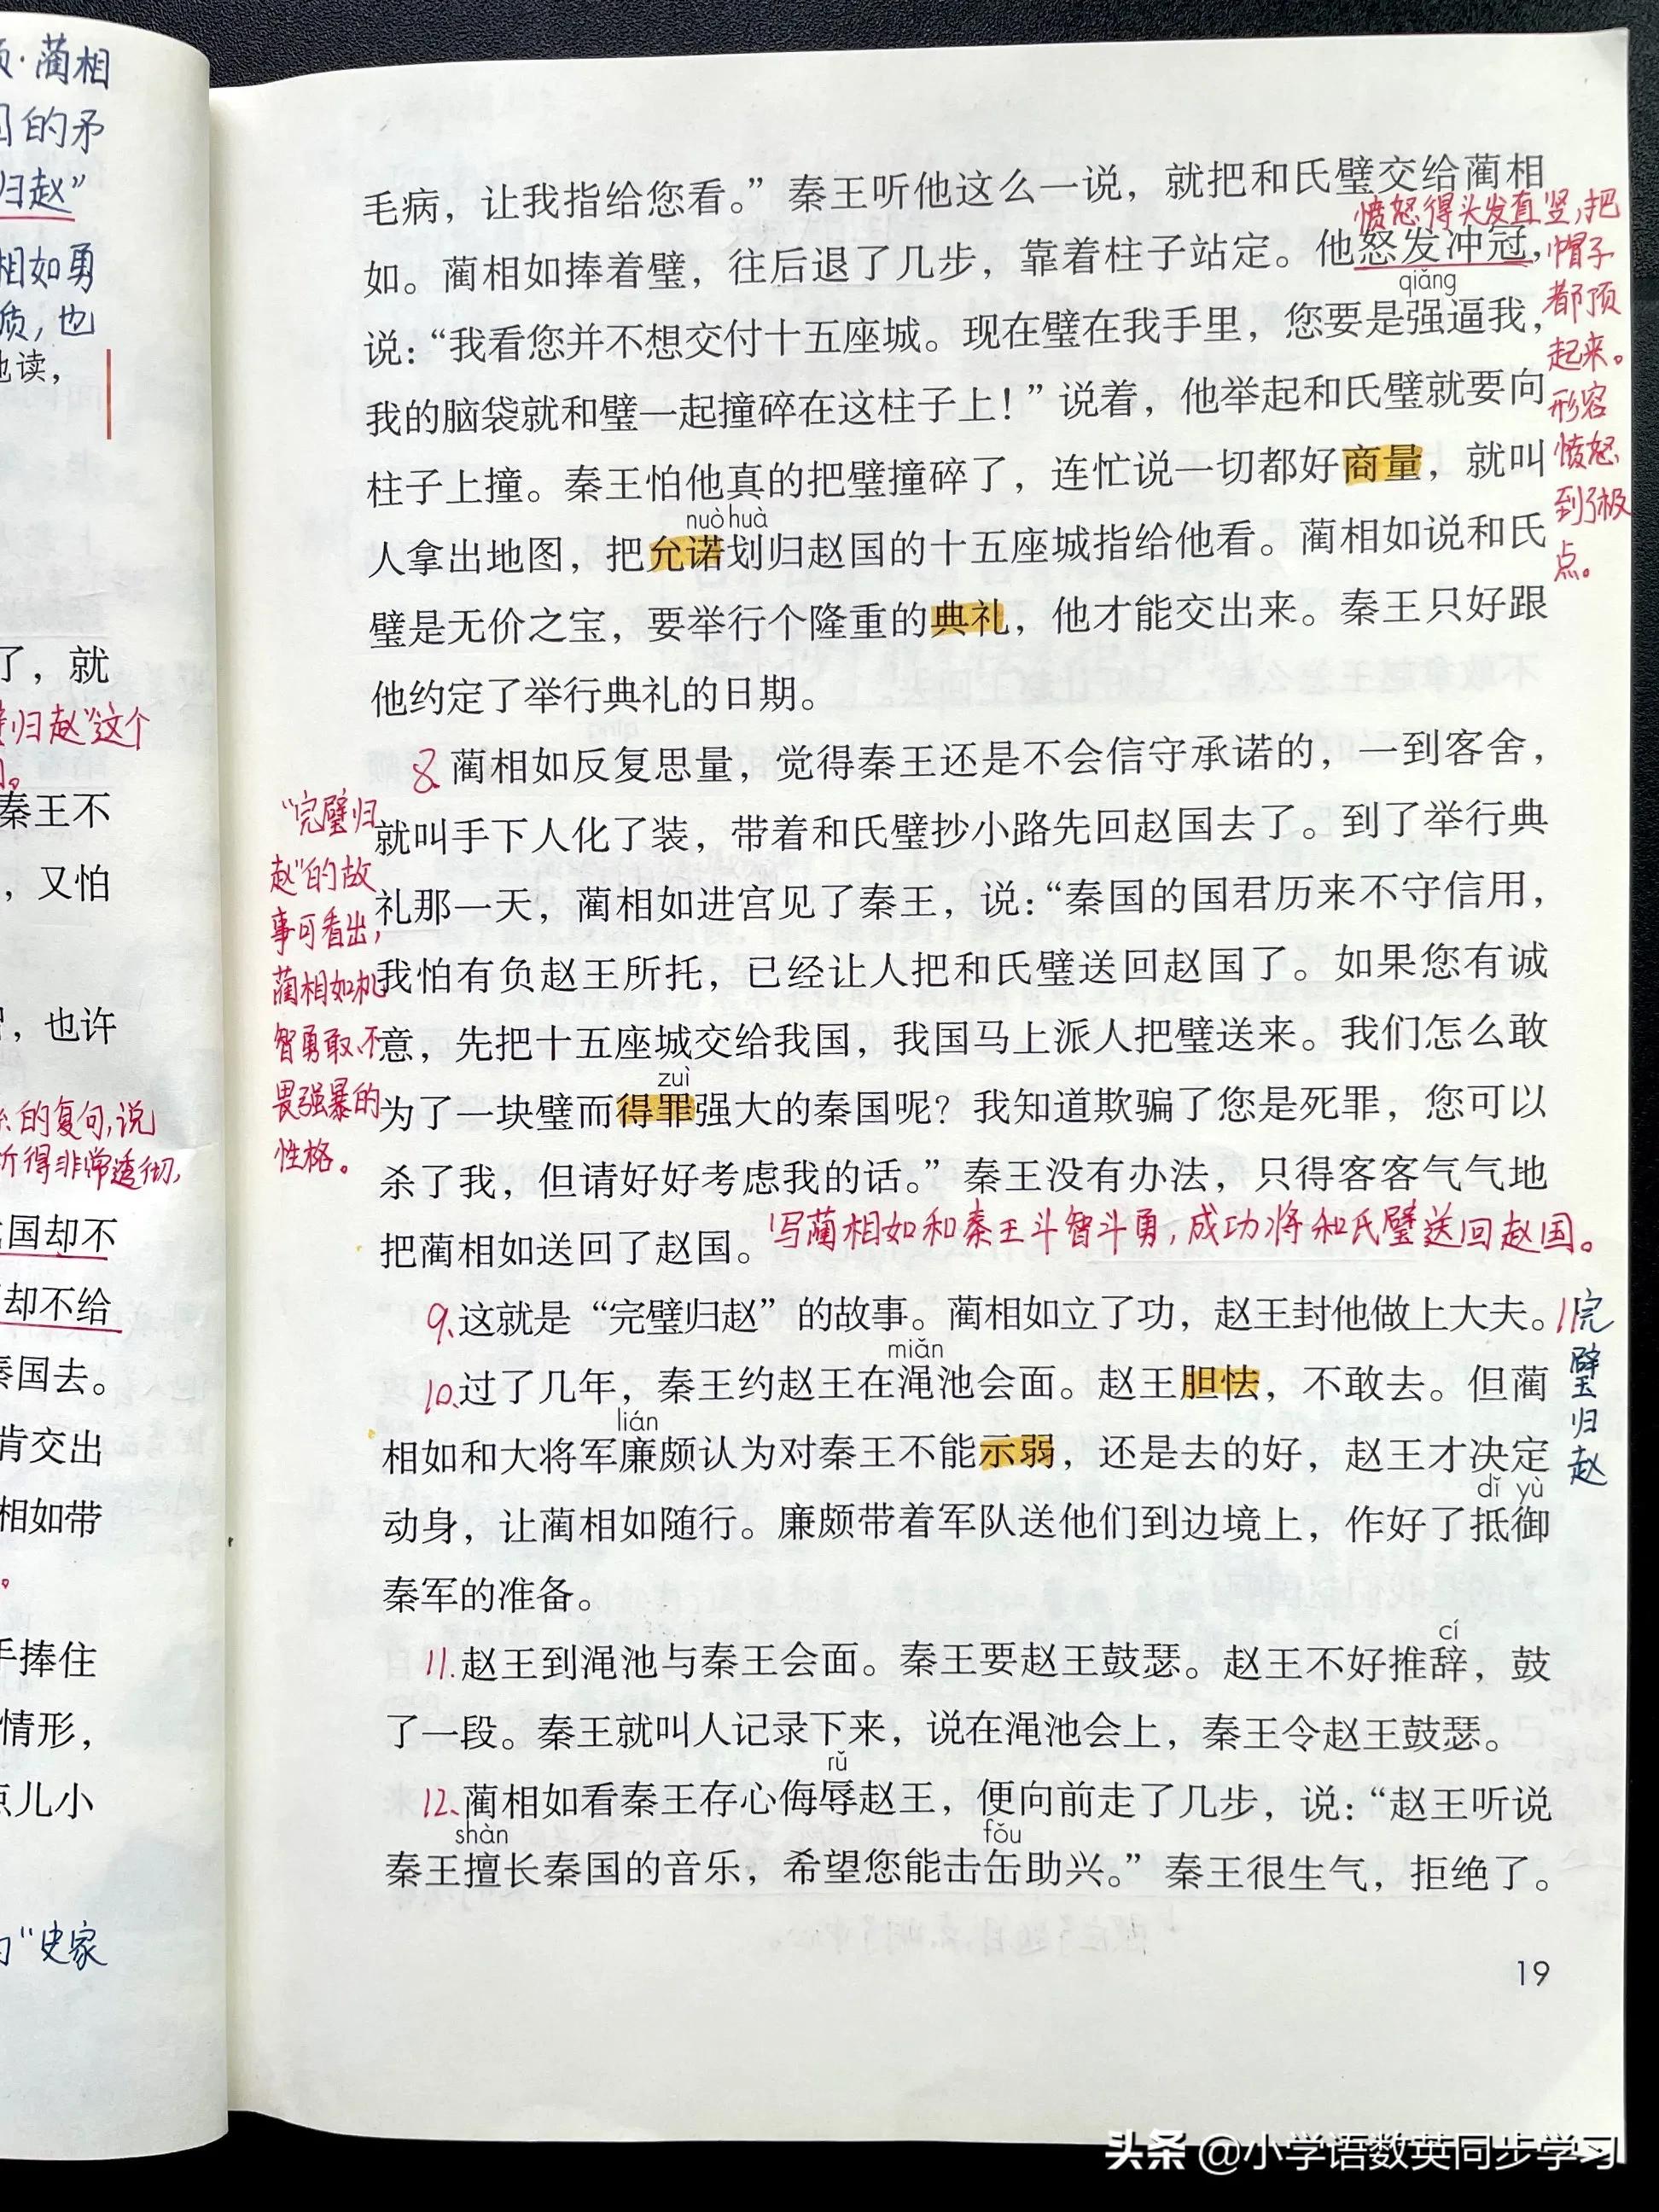 颇·蔺相
国的矛
归赵”
相如勇
质，也
地读，
了，就
璧归赵”这个
秦王不
，又怕
，也许
的复句，说
析得非常透彻，
国却不
却不给
秦国去。
肯交出
相如带
手捧住
情形，
点儿小
“史家
毛病，让我指给您看。”秦王听他这么一说，就把和氏璧交给蔺相
如。蔺相如捧着璧，往后退了几步，靠着柱子站定。他怒发冲冠，
qiǎng
说：“我看您并不想交付十五座城。现在璧在我手里，您要是强逼我，
我的脑袋就和璧一起撞碎在这柱子上！”说着，他举起和氏璧就要向
柱子上撞。秦王怕他真的把璧撞碎了，连忙说一切都好商量，就叫
nuò huà
人拿出地图，把允诺划归赵国的十五座城指给他看。蔺相如说和氏
璧是无价之宝，要举行个隆重的典礼，他才能交出来。秦王只好跟
他约定了举行典礼的日期。
愤怒得头发直竖，把
帽子
都顶
起来。
形容
愤怒
到了极
点。
8、蔺相如反复思量，觉得秦王还是不会信守承诺的，一到客舍，
就叫手下人化了装，带着和氏璧抄小路先回赵国去了。到了举行典
礼那一天，蔺相如进宫见了秦王，说：“秦国的国君历来不守信用，
我怕有负赵王所托，已经让人把和氏璧送回赵国了。如果您有诚
意，先把十五座城交给我国，我国马上派人把璧送来。我们怎么敢
zuì
为了一块璧而得罪强大的秦国呢？我知道欺骗了您是死罪，您可以
杀了我，但请好好考虑我的话。”秦王没有办法，只得客客气气地
把蔺相如送回了赵国。写蔺相如和秦王斗智斗勇，成功将和氏璧送回赵国。
“完璧归
赵”的故
事可看出，
蔺相如机
智勇敢、不
畏强暴的
性格。
9、这就是“完璧归赵”的故事。蔺相如立了功，赵王封他做上大夫。
miǎn
10、过了几年，秦王约赵王在渑池会面。赵王胆怯，不敢去。但蔺
lián
相如和大将军廉颇认为对秦王不能示弱，还是去的好，赵王才决定
dǐ yù
动身，让蔺相如随行。廉颇带着军队送他们到边境上，作好了抵御
秦军的准备。
完
璧
归
赵
cí
11.赵王到渑池与秦王会面。秦王要赵王鼓瑟。赵王不好推辞，鼓
了一段。秦王就叫人记录下来，说在渑池会上，秦王令赵王鼓瑟。
rǔ
12、蔺相如看秦王存心侮辱赵王，便向前走了几步，说：“赵王听说
shàn fǒu
秦王擅长秦国的音乐，希望您能击缶助兴。”秦王很生气，拒绝了。
19
头条 @小学语数英同步学习